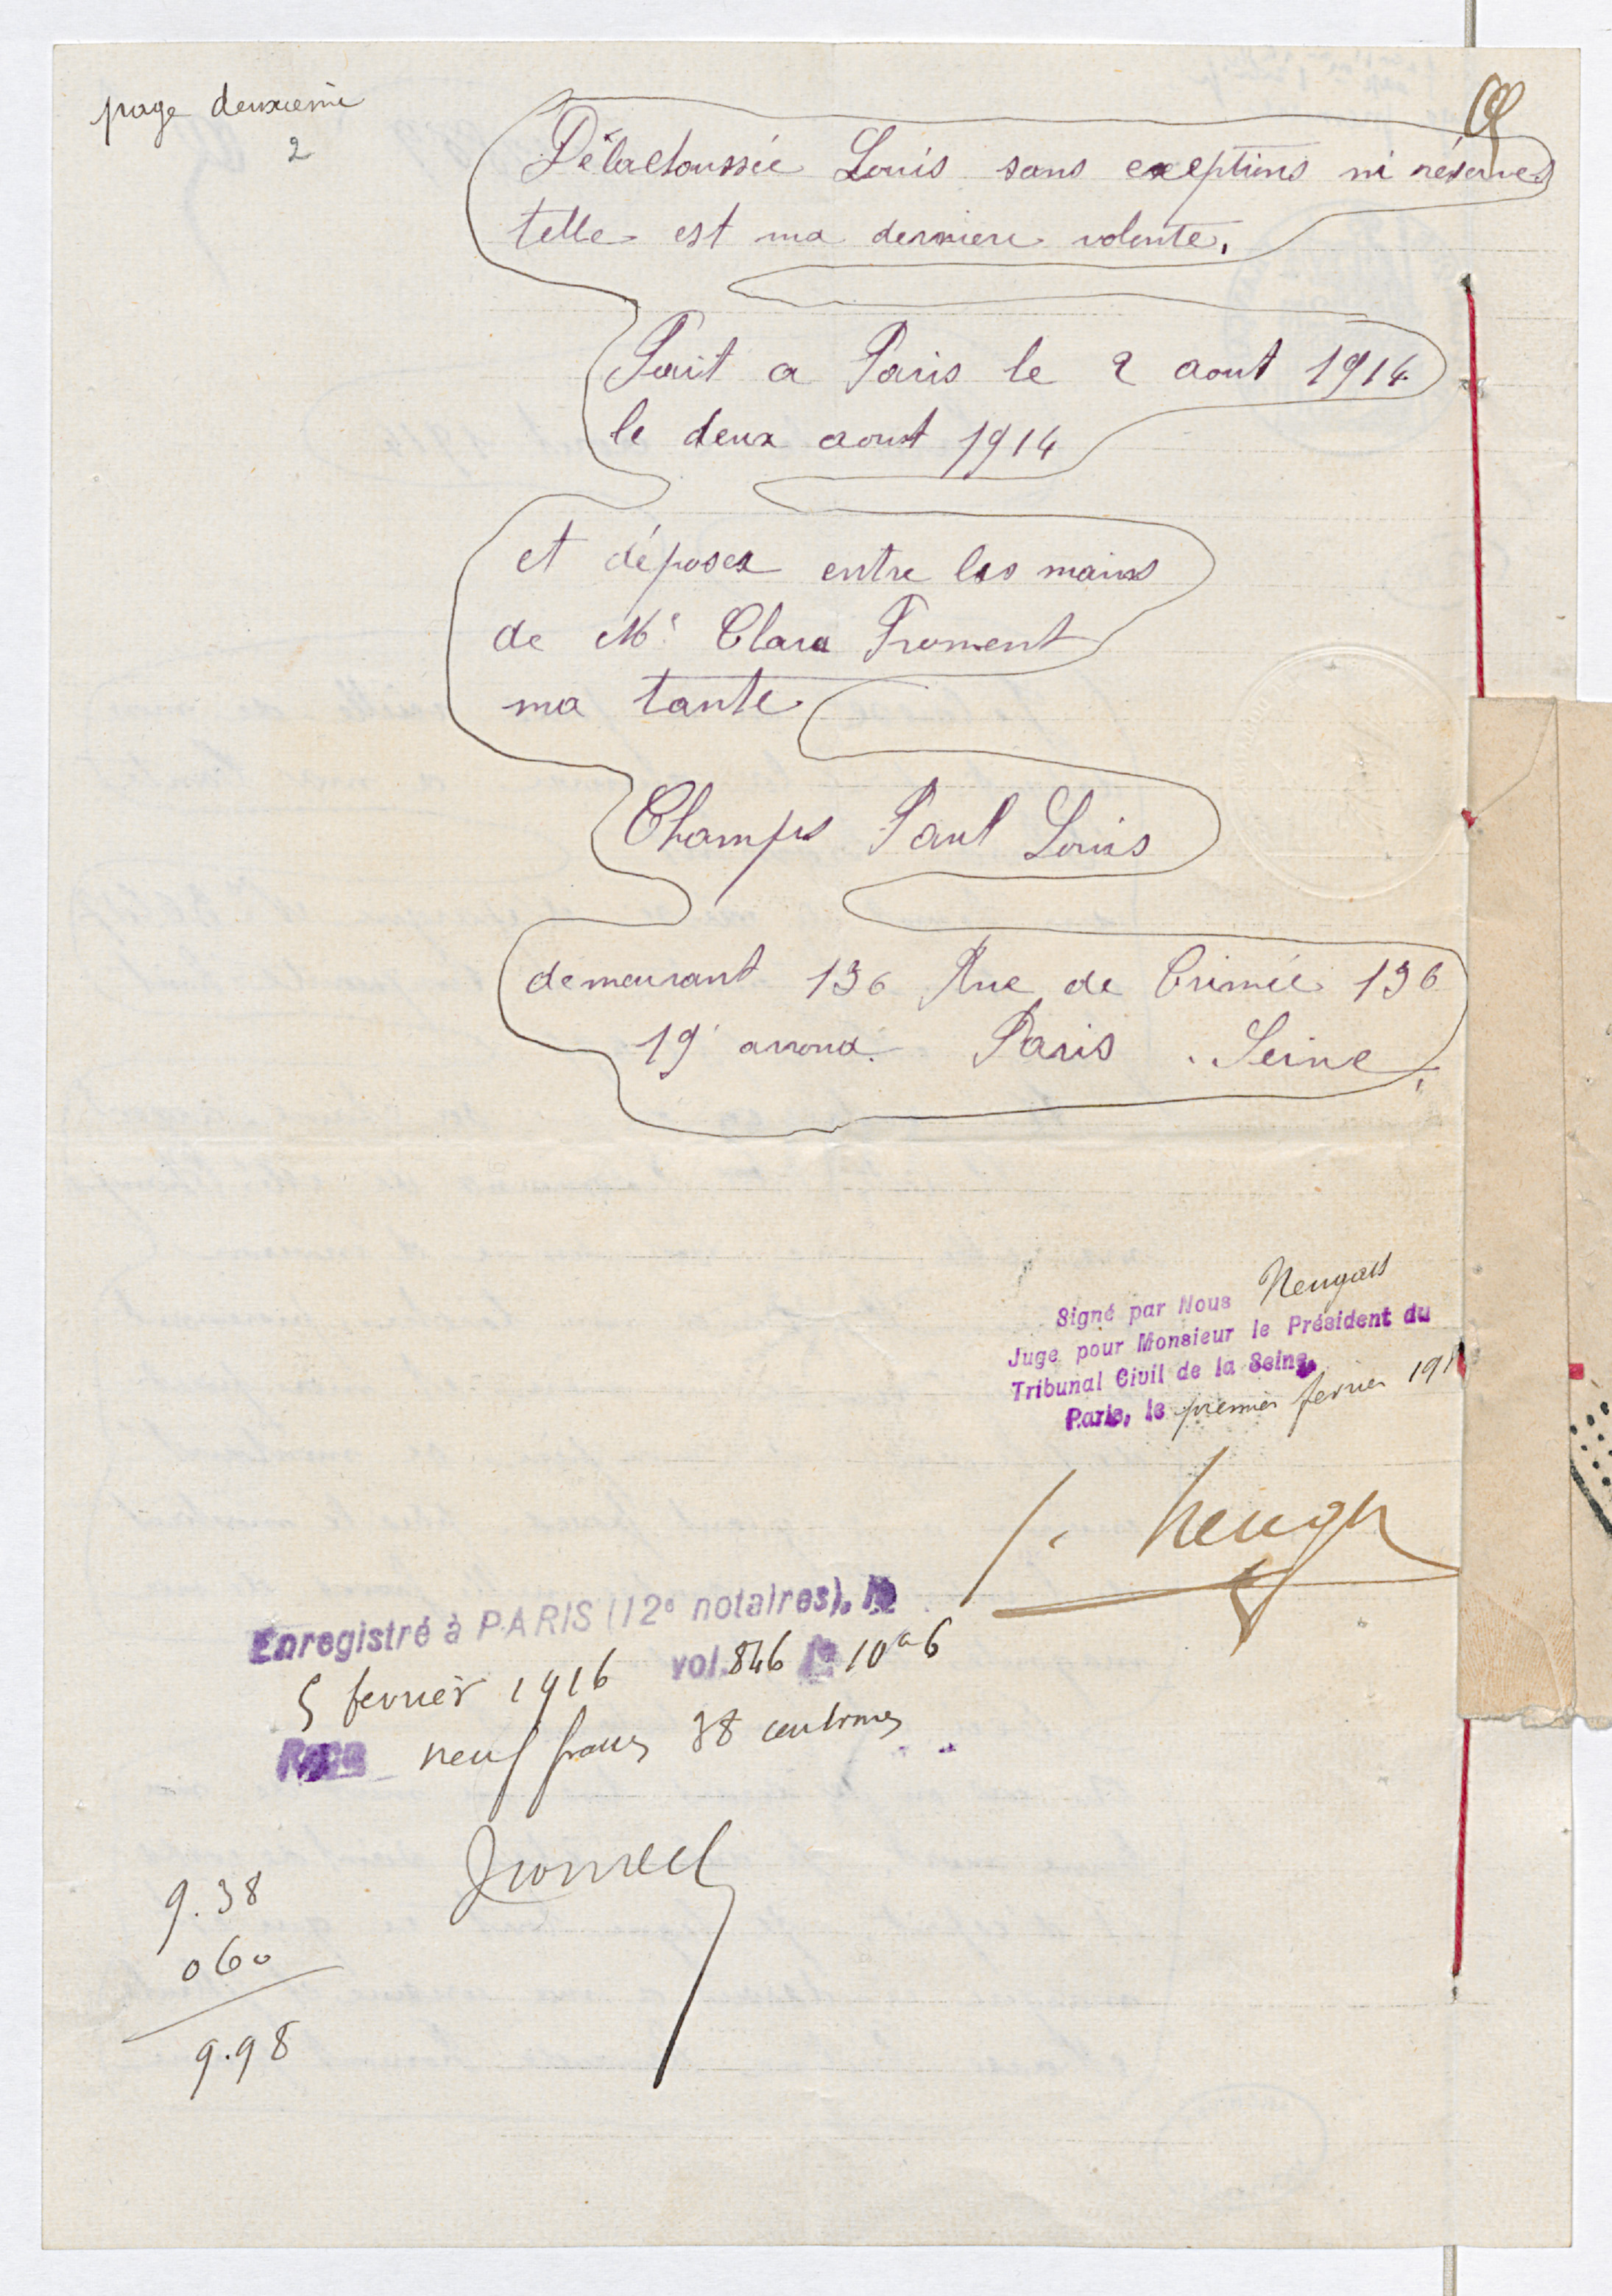 page deuxieme
2
Délachoussée Louis sans exeptions ni réserves
telle est ma derniere volonte,
Fait a Paris le 2 aout 1914
le deux aout 1914
et déposer entre les mains
de Me Clara Froment
ma tante
Champs Paul Louis
demeurant 136 Rue de Crimée 136
19e arrond. Paris . Seine.
Signé par Nous
Juge pour Monsieur le Président du
Tribunal Civil de la Seine,
Paris, le premier fevrier 191
Enregistré à PARIS (12e notaires), le
5 fevrier 1916 vol. 846 10 a 6
Reçu neuf francs 38 centimes
9.38
060
9.98